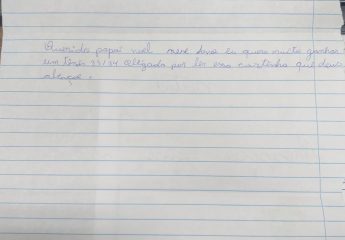 Querido papai noel. meu
eu quero muito ganhar
um tênis 33/34 obrigado por ler essa cartinha que deus
abençoe.